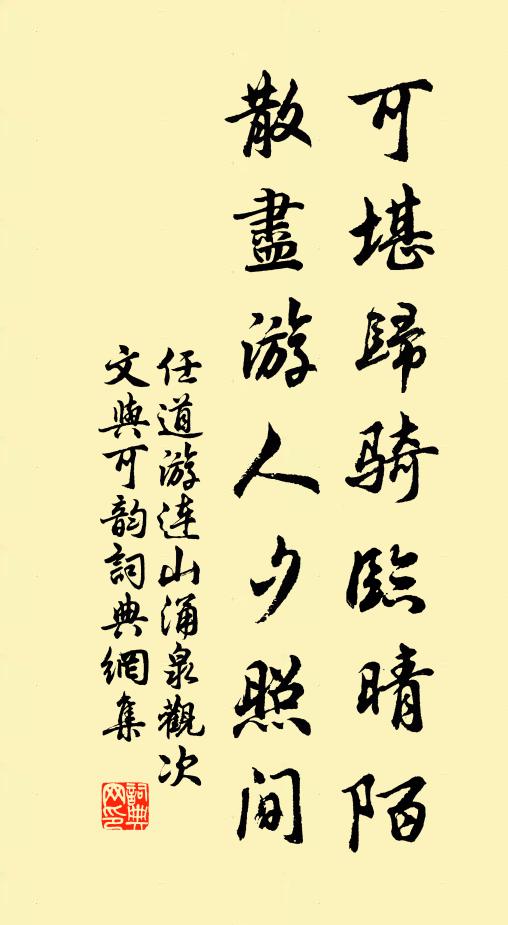 可堪歸騎臨晴陌
散盡游人夕照间
任道游连山涌泉觀次
文與可韵詞典網集
詞典网印